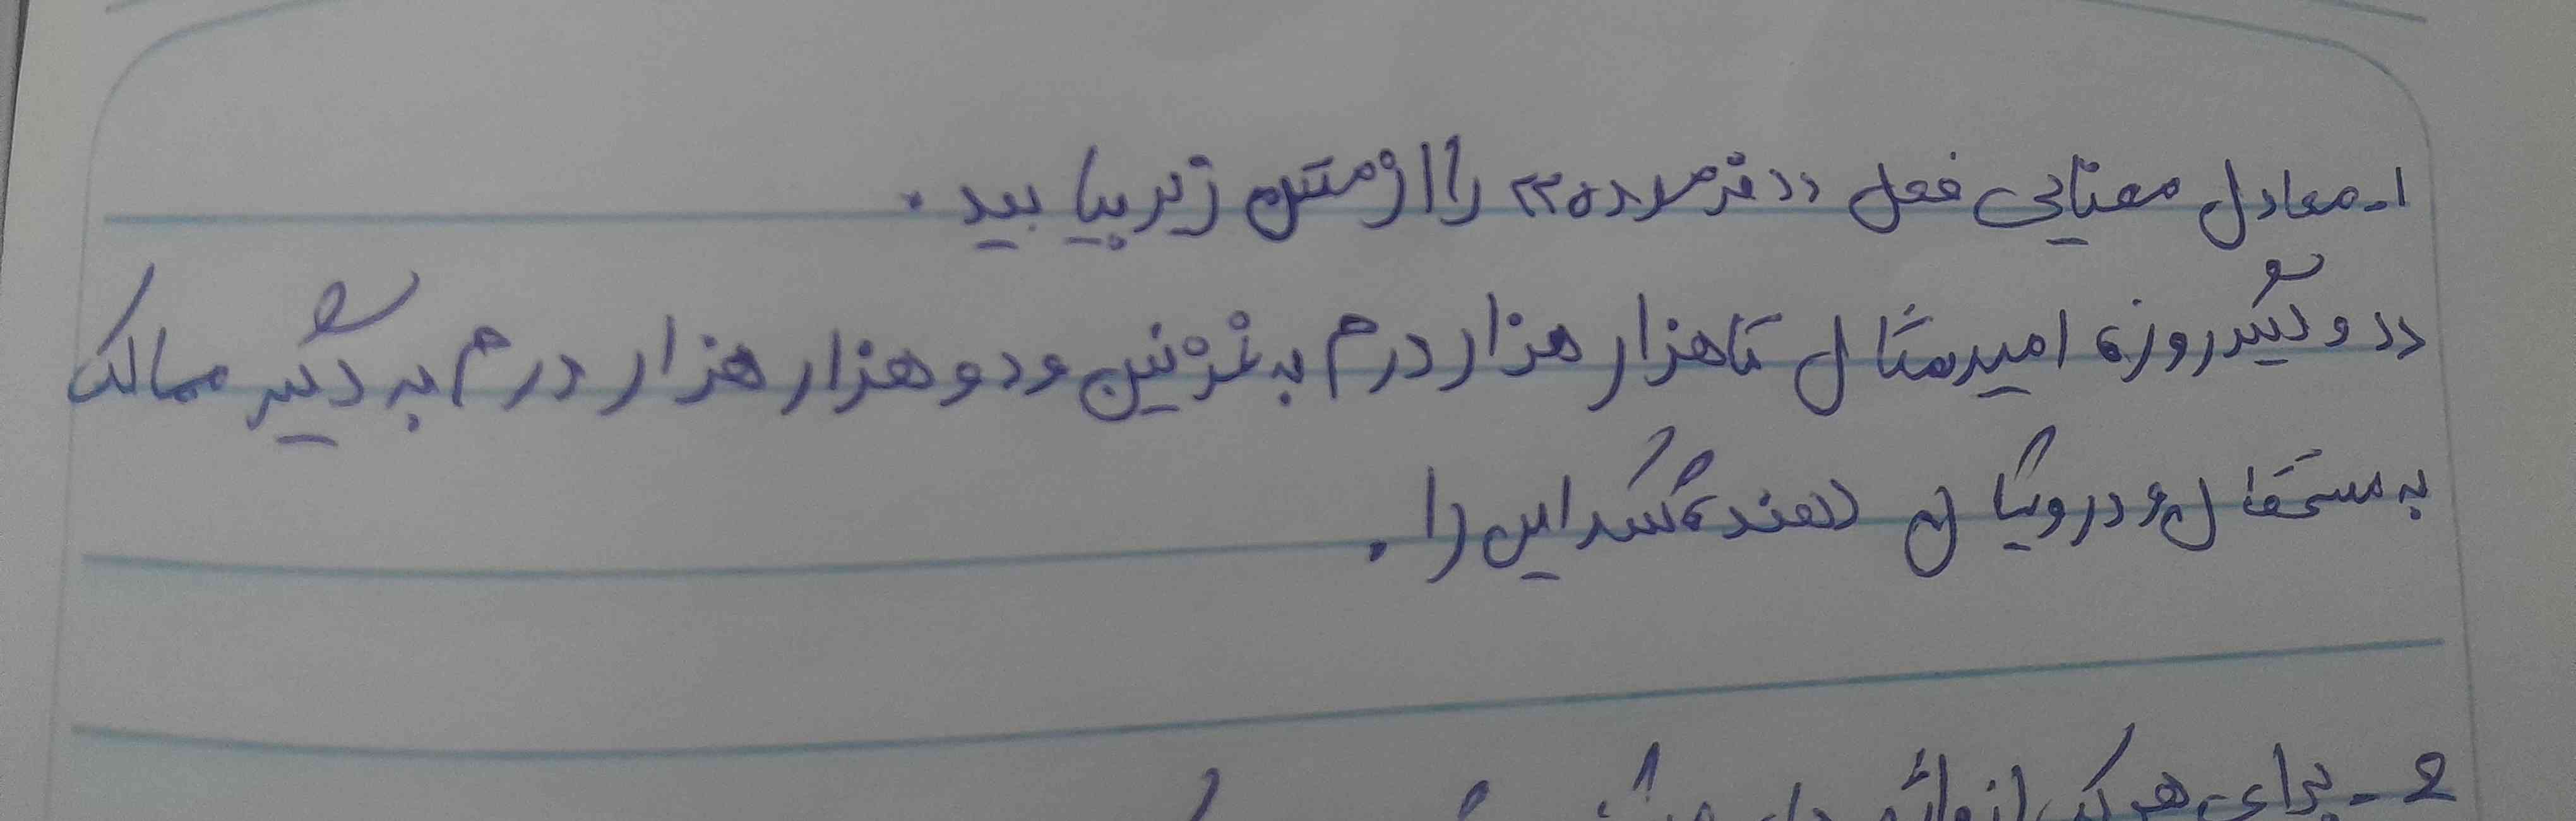 ۱- معادل معنایی فعل «فرمود» را از متن زیر بیابید.
«و دیگر روز، امیر مثال تا هزار هزار درم به غزنین و دو هزار هزار درم به دیگر ممالک
به مستحقان و درویشان دهند، شکر این را.
2- برای هر یک از